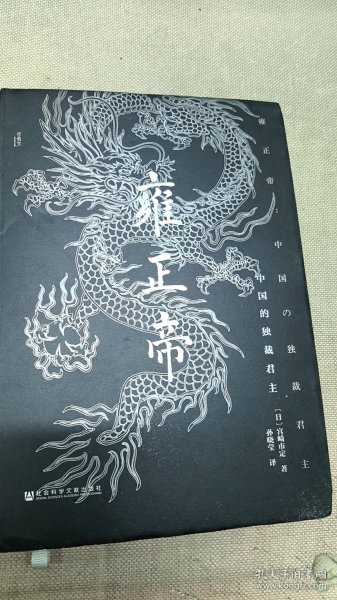 雍正帝
雍正帝：中国の独裁君主
中国的独裁君主
〔日〕宫崎市定 著
孙晓莹 译
甲骨文
社会科学文献出版社
SOCIAL SCIENCES ACADEMIC PRESS (CHINA)
孔夫子旧书网